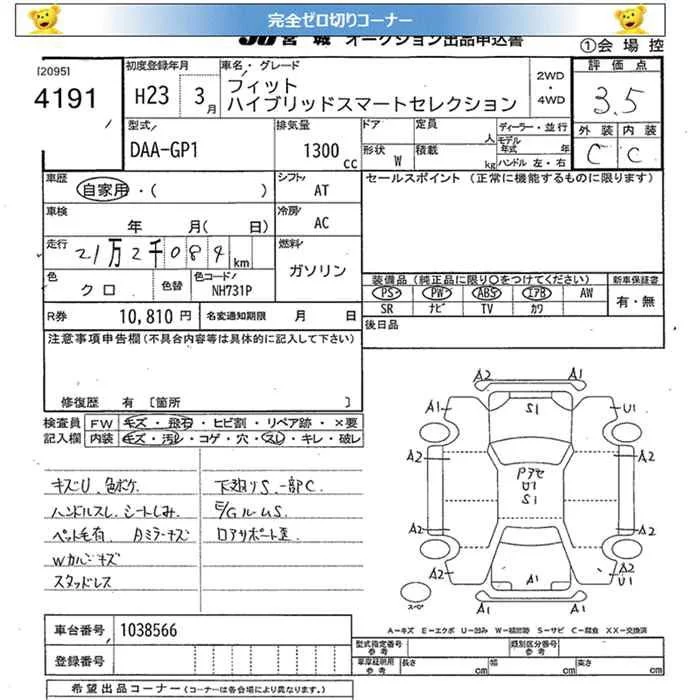 完全ゼロ切りコーナー
JU宮城 オークション出品申込書
①会場控
[2095]
4191
初度登録年月
H23 3月
車名・グレード
フィット
ハイブリッドスマートセレクション
2WD
・
4WD
評価点
3.5
外装 内装
C C
型式
DAA-GP1
排気量
1300cc
ドア
形状 W
定員 人
積載 kg
ディーラー・並行
モデル年式 年
ハンドル 左・右
車歴
自家用・( )
シフト
AT
セールスポイント (正常に機能するものに限ります)
車検
年 月( 日)
冷房
AC
走行
21万2千084km
燃料
ガソリン
色
クロ
色替
色コード
NH731P
装備品 (純正品に限り○をつけてください)
PS PW ABS エアB AW
SR ナビ TV カワ
新車保証書
有・無
R券 10,810円
名変通知期限 月 日
後日品
注意事項申告欄(不具合内容等は具体的に記入して下さい)
修復歴 有 [箇所 ]
検査員
記入欄
FW キズ・飛石・ヒビ割・リペア跡・×要
内装 キズ・汚レ・コゲ・穴・スレ・キレ・破レ
キズU、色ボケ
ハンドルスレ、シートしみ
ペット毛有 Aミラーキズ
Wカルンキズ
スタッドレス
下廻りS、一部C
E/GルームS
ロアサポート歪
A2 A1
A1 S1 U1
A2 A2
P3アセ
U1
S1
A2 A2
A2 A2
U1
A1
A1 A1
スペア
A-キズ E-エクボ U-凹み W-補修跡 S-サビ C-腐食 XX-交換済
車台番号 1038566
登録番号
型式指定番号
参考
類別区分番号
参考
車庫証明用
参考
長さ cm
幅 cm
高さ cm
希望出品コーナー(コーナーは各会場により異なります。)